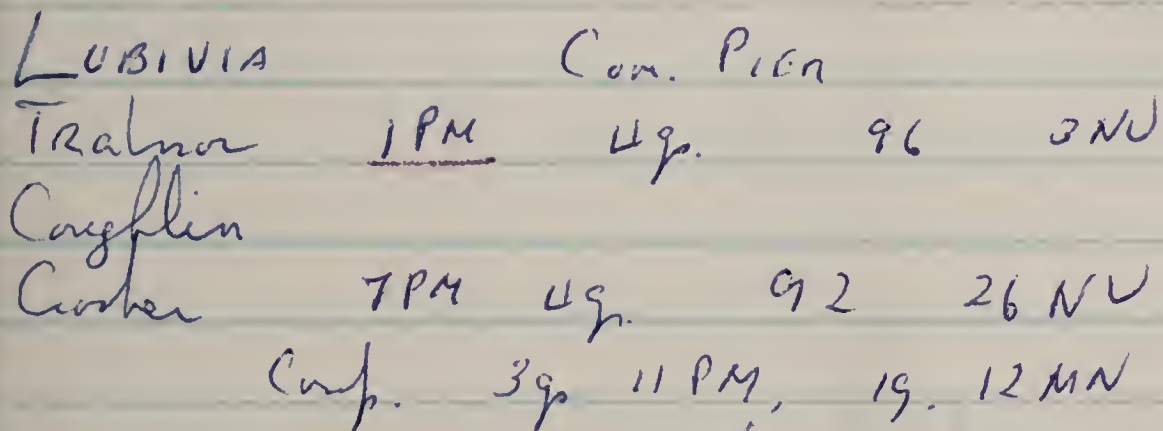 LUBIVIA Com. PIER
Trainor 1PM 4g. 96 3 NU
Coughlin
Crosber 7PM 4g. 92 26 NU
Comp. 3g 11 PM, 1g. 12 MN